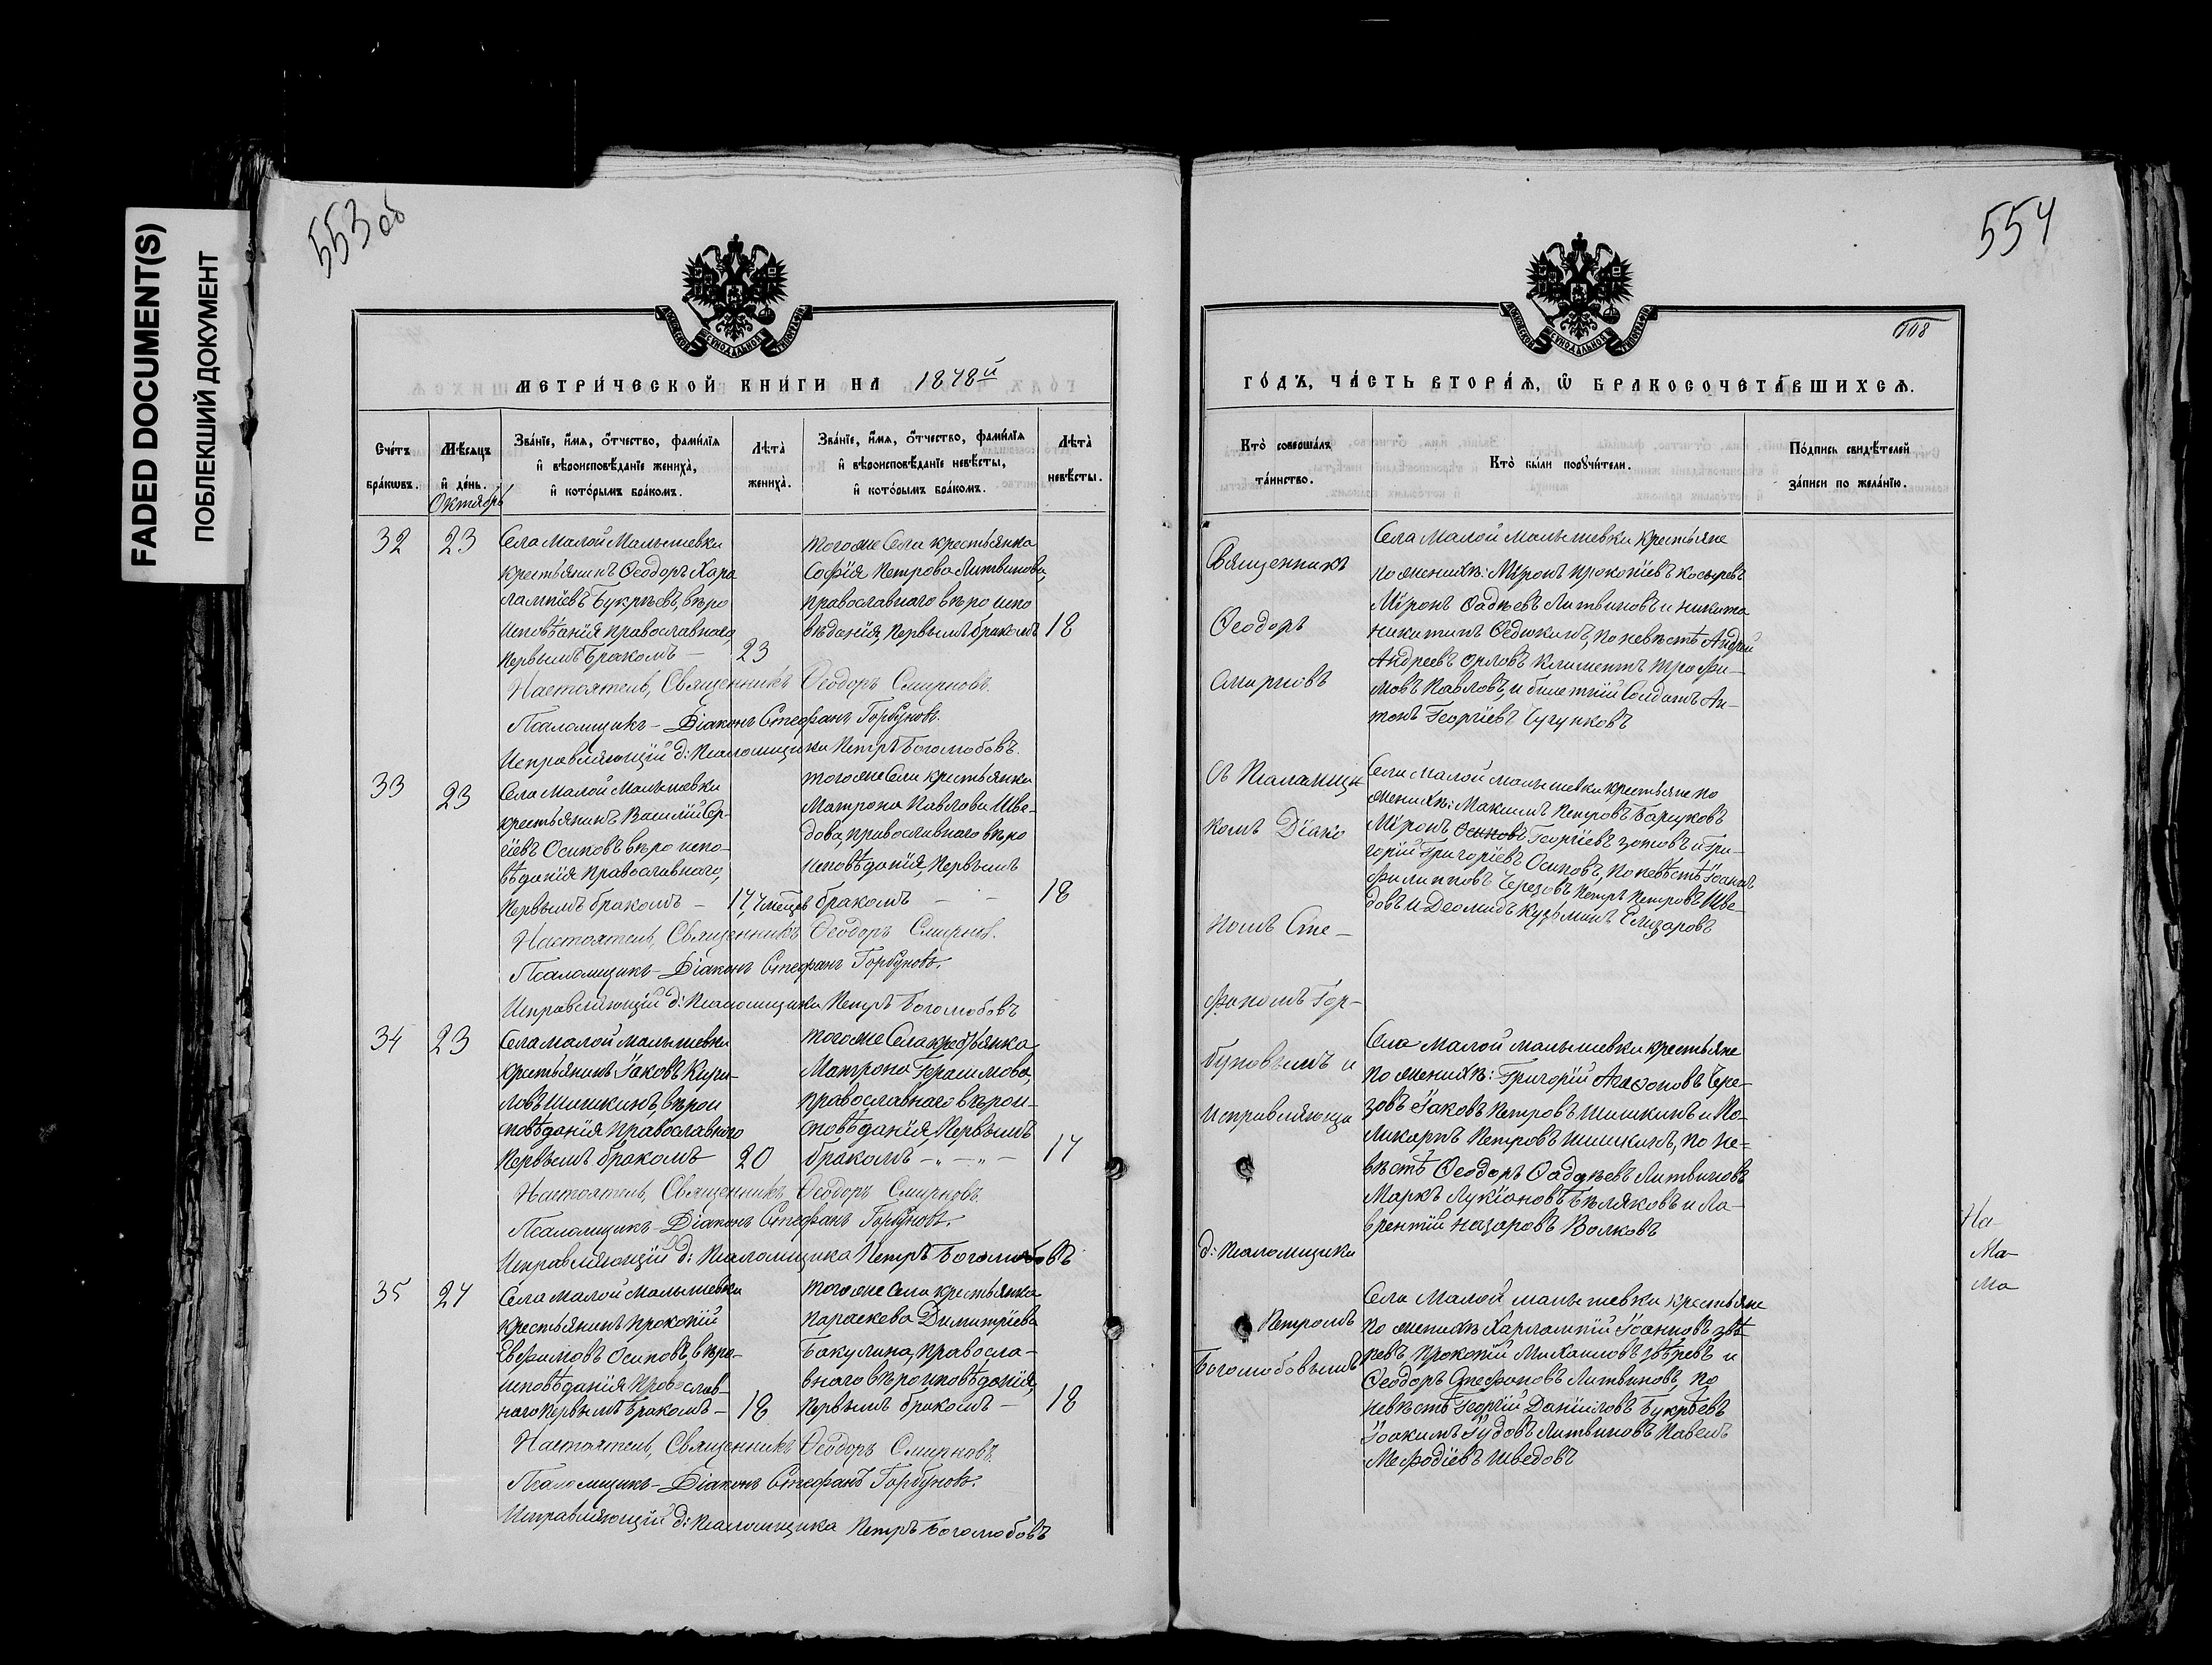 FADED DOCUMENT(S)
ПОБЛЕКШИЙ ДОКУМЕНТ
553 об
МЕТРИ́ЧЕСКОЙ КНИ́ГИ НА 1878й
Сче́тъ бра́кѡвъ.
Мѣ́сяцъ и҆ де́нь.
Зва́нїе, и҆́мя, ѻ҆́тчество, фами́лїя и҆ вѣроисповѣ́данїе жениха̀, и҆ кото́рымъ бра́комъ.
Лѣта̀ жениха̀.
Зва́нїе, и҆́мя, ѻ҆́тчество, фами́лїя и҆ вѣроисповѣ́данїе невѣ́сты, и҆ кото́рымъ бра́комъ.
Лѣта̀ невѣ́сты.
Октябрь
32
23
Села Малой Малышевки
крестьянинъ Ѳеодоръ Хара
лампіевъ Букрѣевъ, вѣро
исповѣданія православнаго,
первымъ бракомъ —
23
тогоже Села крестьянка
Софія Петрова Литвинова,
православнаго вѣроиспо
вѣданія, первымъ бракомъ
18
Настоятель, Священникъ Ѳеодоръ Смирновъ.
Псаломщикъ — Діаконъ Стефанъ Горбуновъ.
Исправляющій д: псаломщика Петръ Боголюбовъ.
33
23
Села Малой Малышевки
крестьянинъ Василій Сер-
гіевъ Осиповъ вѣро испо-
вѣданія православнаго,
первымъ бракомъ —
17, 7 месцев
тогоже Села крестьянка
Матрона Павлова Шве-
дова, православнаго вѣро
исповѣданія, первымъ
бракомъ — —
18
Настоятель, Священникъ Ѳеодоръ Смирновъ.
Псаломщикъ — Діаконъ Стефанъ Горбуновъ.
Исправляющій д: псаломщика Петръ Боголюбовъ
34
23
Села малой малышевки
крестьянинъ Іаковъ Кири-
ловъ Шишкинъ, вѣрои
сповѣданія православнаго
первымъ бракомъ
20
тогоже Села крестьянка
Матрона Герасимова,
православнаго вѣрои-
сповѣданія, первымъ
бракомъ — „ — „ —
17
Настоятель, Священникъ Ѳеодоръ Смирновъ.
Псаломщикъ — Діаконъ Стефанъ Горбуновъ.
Исправляющій д: псаломщика Петръ Боголюбовъ
35
24
Села малой Малышевки
крестьянинъ Прокопій
Евфимовъ Осиповъ, вѣро-
исповѣданія православ-
наго первымъ бракомъ —
18
тогоже села крестьянка
Параскева Димитріева
Бакулина, правосла-
внаго вѣроисповѣданія,
первымъ бракомъ —
18
Настоятель, Священникъ Ѳеодоръ Смирновъ.
Псаломщикъ — Діаконъ Стефанъ Горбуновъ.
Исправляющій д: псаломщика Петръ Боголюбовъ
554
108
ГО́ДЪ, ЧА́СТЬ ВТОРА́Я, Ѡ҆ БРАКОСОЧЕТА́ВШИХСЯ.
Кто̀ соверша́лъ та́инство.
Кто̀ бы́ли пορꙋчи́тели.
По́дпись свидѣ́телей за́писи по жела́нїю.
Священникъ
Ѳеодоръ
Смирновъ
съ Псаломщи-
комъ Діако
номъ Сте-
фаномъ Гор-
буновымъ и
исправляющи
д: псаломщика
Петромъ
Боголюбовымъ
Села Малой Малышевки крестьяне
по женихѣ: Мѵронъ Прокопіевъ Косыревъ
Мѵронъ Ѳадѣевъ Литвиновъ и Никита
Никитинъ Ѳедюкинъ, по невѣстѣ Андрей
Андреевъ Орловъ Климентъ Трофи-
мовъ Павловъ, и билетній Солдатъ Ан-
тонъ Георгіевъ Чугунковъ
Села малой малышевки крестьяне по
женихѣ: Максимъ Петровъ Борщковъ
Мѵронъ Осиповъ Георгіевъ Зотовъ и Гри-
горій Григоріевъ Осиповъ, по невѣстѣ Іоаннъ
Филипповъ Черезовъ Петръ Петровъ Шве-
довъ и Деомидъ Кузьминъ Елизаровъ
Села малой малышевки крестьяне
по женихѣ: Григорій Агаѳоновъ Чере-
зовъ Іаковъ Петровъ Шишкинъ и По-
ликарпъ Петровъ Шишкинъ, по не-
вѣстѣ Ѳеодоръ Ѳаддѣевъ Литвиновъ
Маркъ Лукіановъ Бѣляковъ и Ла-
врентій Назаровъ Волковъ
Села Малой малышевки крестьяне
по женихѣ Харлампій Іоанновъ звѣ-
ревъ Прокопій Михаиловъ Звѣревъ и
Ѳеодоръ Стефановъ Литвиновъ, по
невѣстѣ Георгій Даніиловъ Букрѣевъ
Іоакимъ Іудовъ Литвиновъ Павелъ
Меѳодіевъ Шведовъ
На-
Ма-
Ма